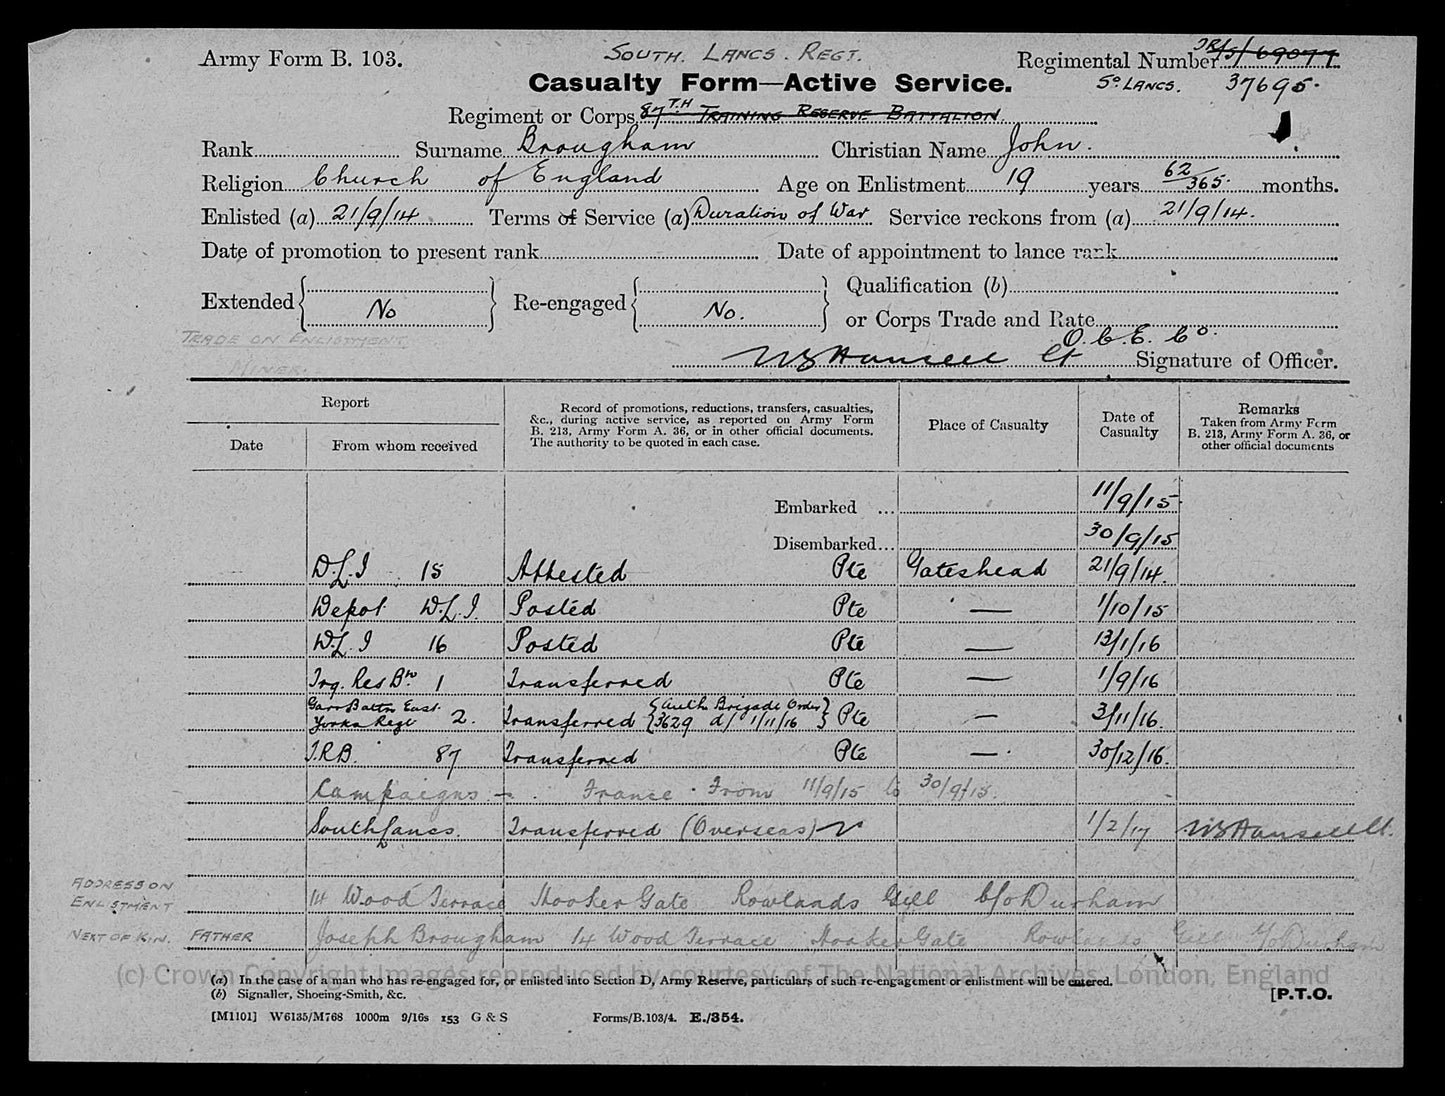 Army Form B. 103.
SOUTH. LANCS. REGT.
Regimental Number TR/5/69077
Casualty Form—Active Service.
So LANCS. 37695.
Regiment or Corps 87TH TRAINING RESERVE BATTALION
Rank Surname Brougham Christian Name John.
Religion Church of England Age on Enlistment 19 years 62/365 months.
Enlisted (a) 21/9/14 Terms of Service (a) Duration of War Service reckons from (a) 21/9/14.
Date of promotion to present rank Date of appointment to lance rank
Extended { No } Re-engaged { No. } Qualification (b)
or Corps Trade and Rate
TRADE ON ENLISTMENT
MINER.
O.C.E. Co.
Lt Signature of Officer.
Report
Date
From whom received
Record of promotions, reductions, transfers, casualties,
&c., during active service, as reported on Army Form
B. 213, Army Form A. 36, or in other official documents.
The authority to be quoted in each case.
Place of Casualty
Date of
Casualty
Remarks
Taken from Army Form
B. 213, Army Form A. 36, or
other official documents
Embarked ... 11/9/15
Disembarked... 30/9/15
D.L.I 15 Attested Pte Gateshead 21/9/14.
Depot D.L.I. Posted Pte — 1/10/15
D.L.I 16 Posted Pte — 13/1/16
Trg. Res Bn 1 Transferred Pte — 1/9/16
Garr Battn East
Yorks Regt 2. Transferred {Auth Brigade Order 3629 d/ 1/11/16} Pte — 3/11/16.
T.R.B. 87 Transferred Pte — 30/12/16.
Campaigns — France - From 11/9/15 to 30/9/15.
South Lancs. Transferred (Overseas) 1/2/17
ADDRESS ON
ENLISTMENT
14 Wood Terrace Hooker Gate Rowlands Gill C/o Durham
NEXT OF KIN. FATHER Joseph Brougham 14 Wood Terrace Hooker Gate Rowlands Gill C/o Durham
(c) Crown Copyright Images reproduced by courtesy of The National Archives, London, England
(a) In the case of a man who has re-engaged for, or enlisted into Section D, Army Reserve, particulars of such re-engagement or enlistment will be entered.
(b) Signaller, Shoeing-Smith, &c.
[P.T.O.
[M1101] W6135/M768 1000m 9/16s 153 G & S Forms/B.103/4. E./354.